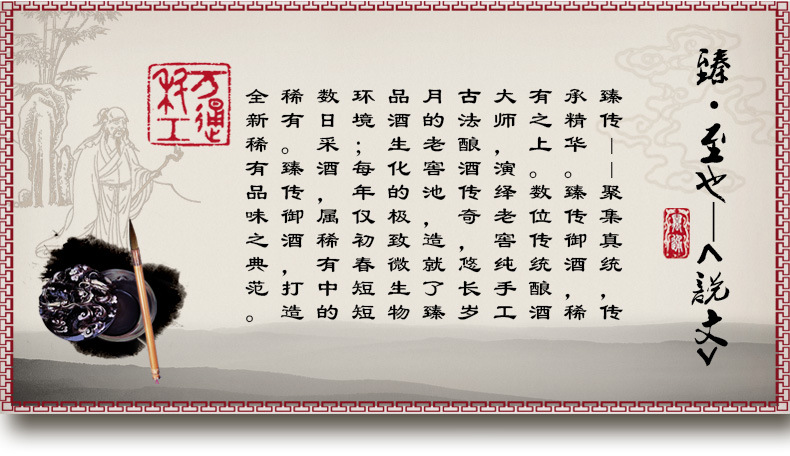 臻·至也—<說文>
臻传——聚集真统，传
承精华。臻传御酒，稀
有之上。数位传统酿酒
大师，演绎老窖纯手工
古法酿酒传奇，悠长岁
月的老窖池，造就了臻
品酒生化的极致微生物
环境；每年仅初春短短
数日采酒，属稀有中的
稀有。臻传御酒，打造
全新稀有品味之典范。